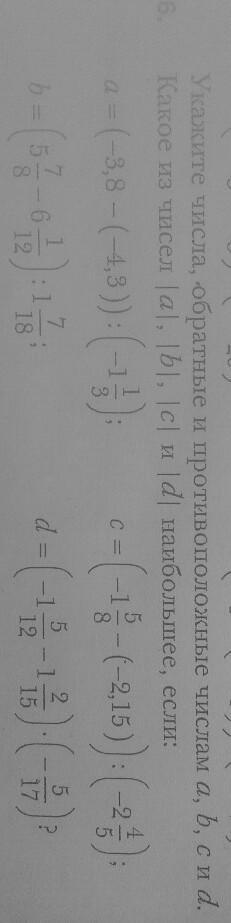 Укажите числа, обратные и противоположные числам a, b, c и d.
6. Какое из чисел |a|, |b|, |c| и |d| наибольшее, если:
a = (−3,8 − (−4,3)) : (−1 1/3);
c = (−1 5/8 − (−2,15)) : (−2 4/5);
b = (5 7/8 − 6 1/12) : 1 7/18;
d = (−1 5/12 − 1 2/15) · (−5/17)?